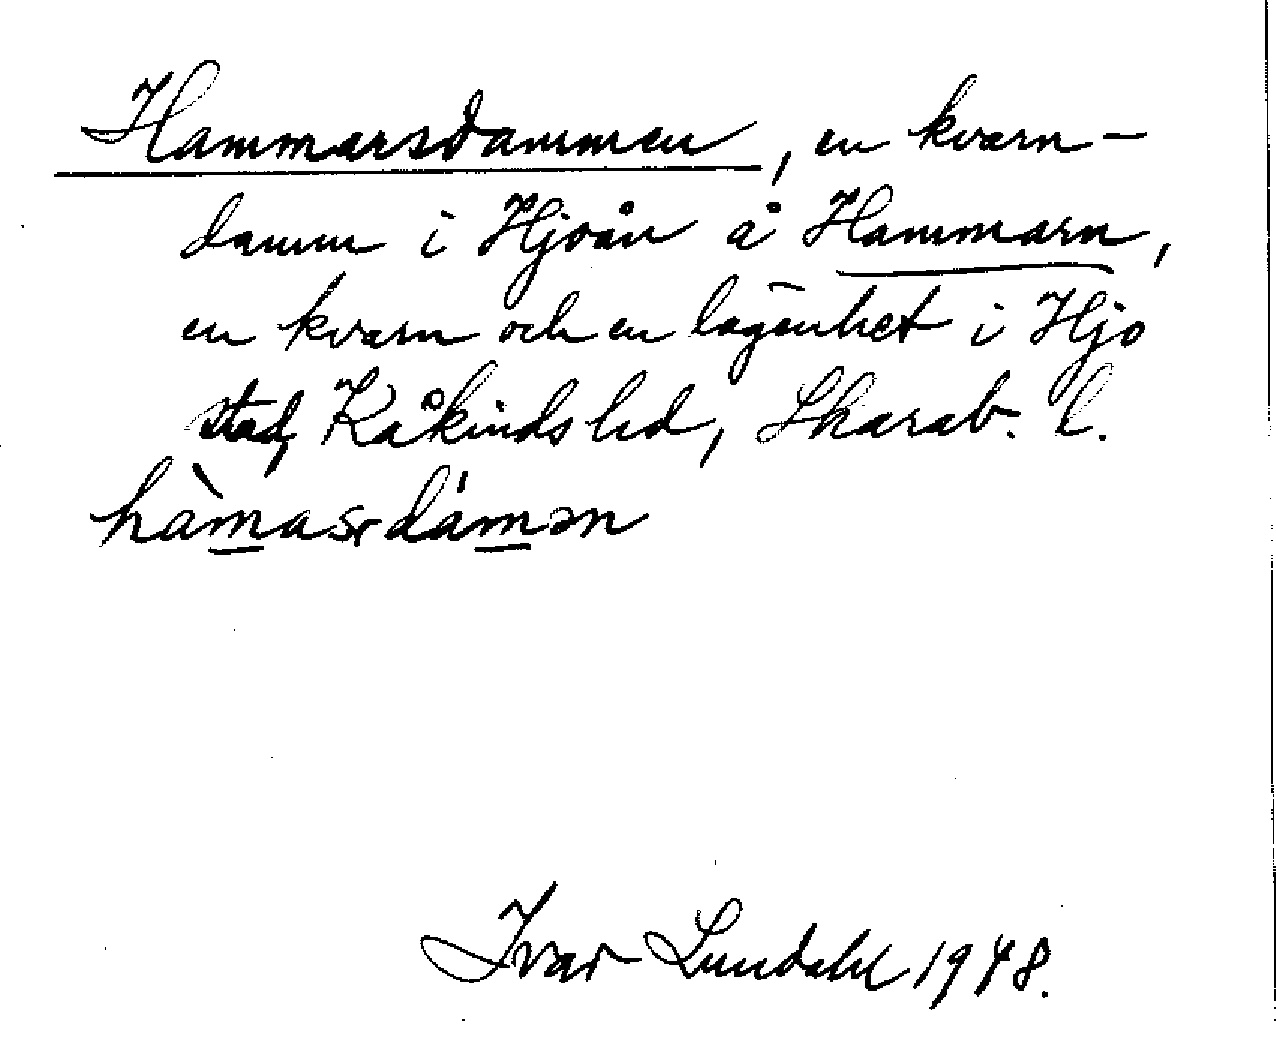 Hammarsdammen, en kvarn-
damm i Hjoån å Hammarn,
en kvarn och en lägenhet i Hjo
stad, Kåkinds hd, Skarab. l.
hàmasrdámən
Ivar Lundahl 1948.